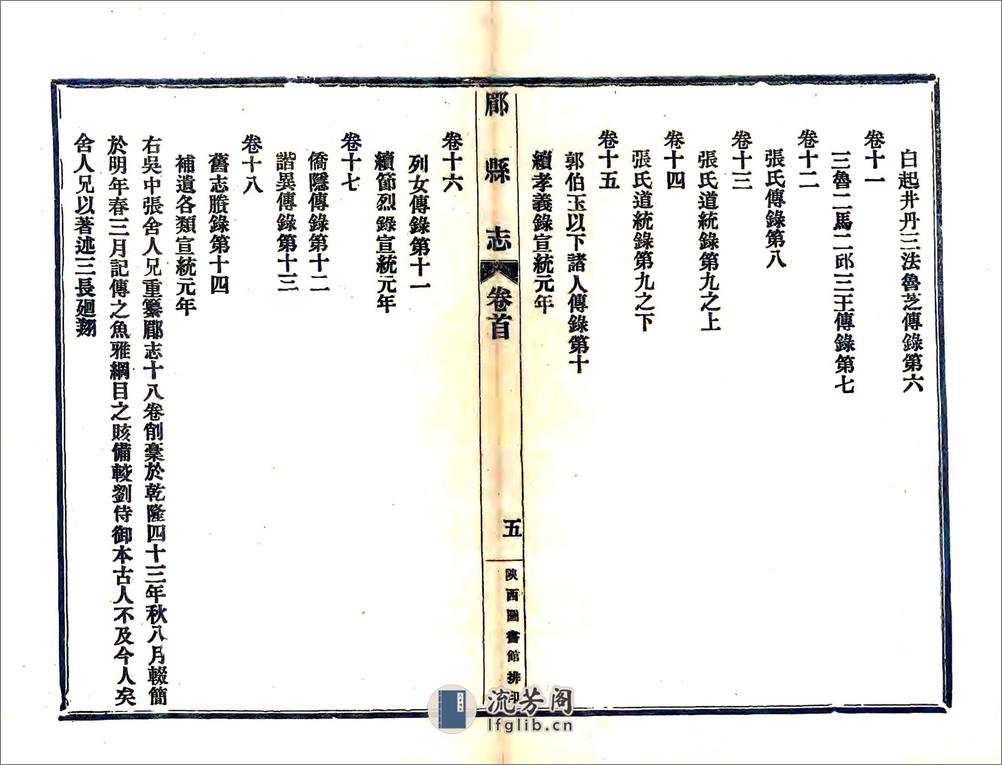 白起井丹三法魯芝傳錄第六
卷十一
三魯二馬二邱三王傳錄第七
卷十二
張氏傳錄第八
卷十三
張氏道統錄第九之上
卷十四
張氏道統錄第九之下
卷十五
郭伯玉以下諸人傳錄第十
續孝義錄宣統元年
郿縣志
卷首
五
陝西圖書館排印
卷十六
列女傳錄第十一
續節烈錄宣統元年
卷十七
僑隱傳錄第十二
諧異傳錄第十三
卷十八
舊志賸錄第十四
補遺各類宣統元年
右吳中張舍人兄重纂郿志十八卷創稾於乾隆四十三年秋八月輟簡
於明年春三月記傳之魚雅綱目之賅備較劉侍御本古人不及今人矣
舍人兄以著述三長廻翔
流芳阁
lfglib.cn